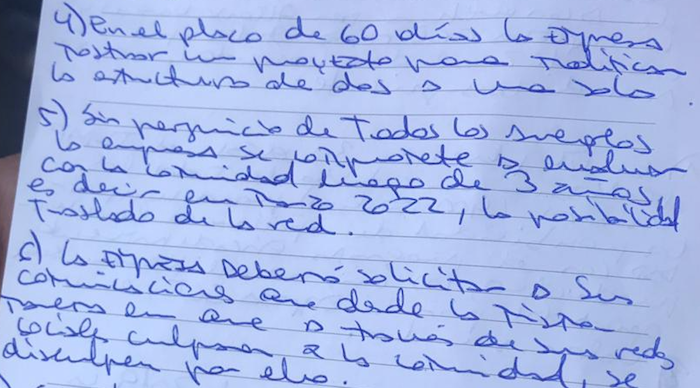 4) En el plaso de 60 días la Empresa
mostrar un proyecto para modificar
la estructura de dos a una sola
5) Sin perjuicio de Todos los arreglos
la empresa se compromete a evaluar
con la comunidad luego de 3 años,
es decir en marzo 2022, la posibilidad
Traslado de la red.
6) La Empresa Deberá solicitar a Sus
que dade la misma
manera en que a través de sus redes
sociales culparon a la comunidad, se
disculpen por ello.